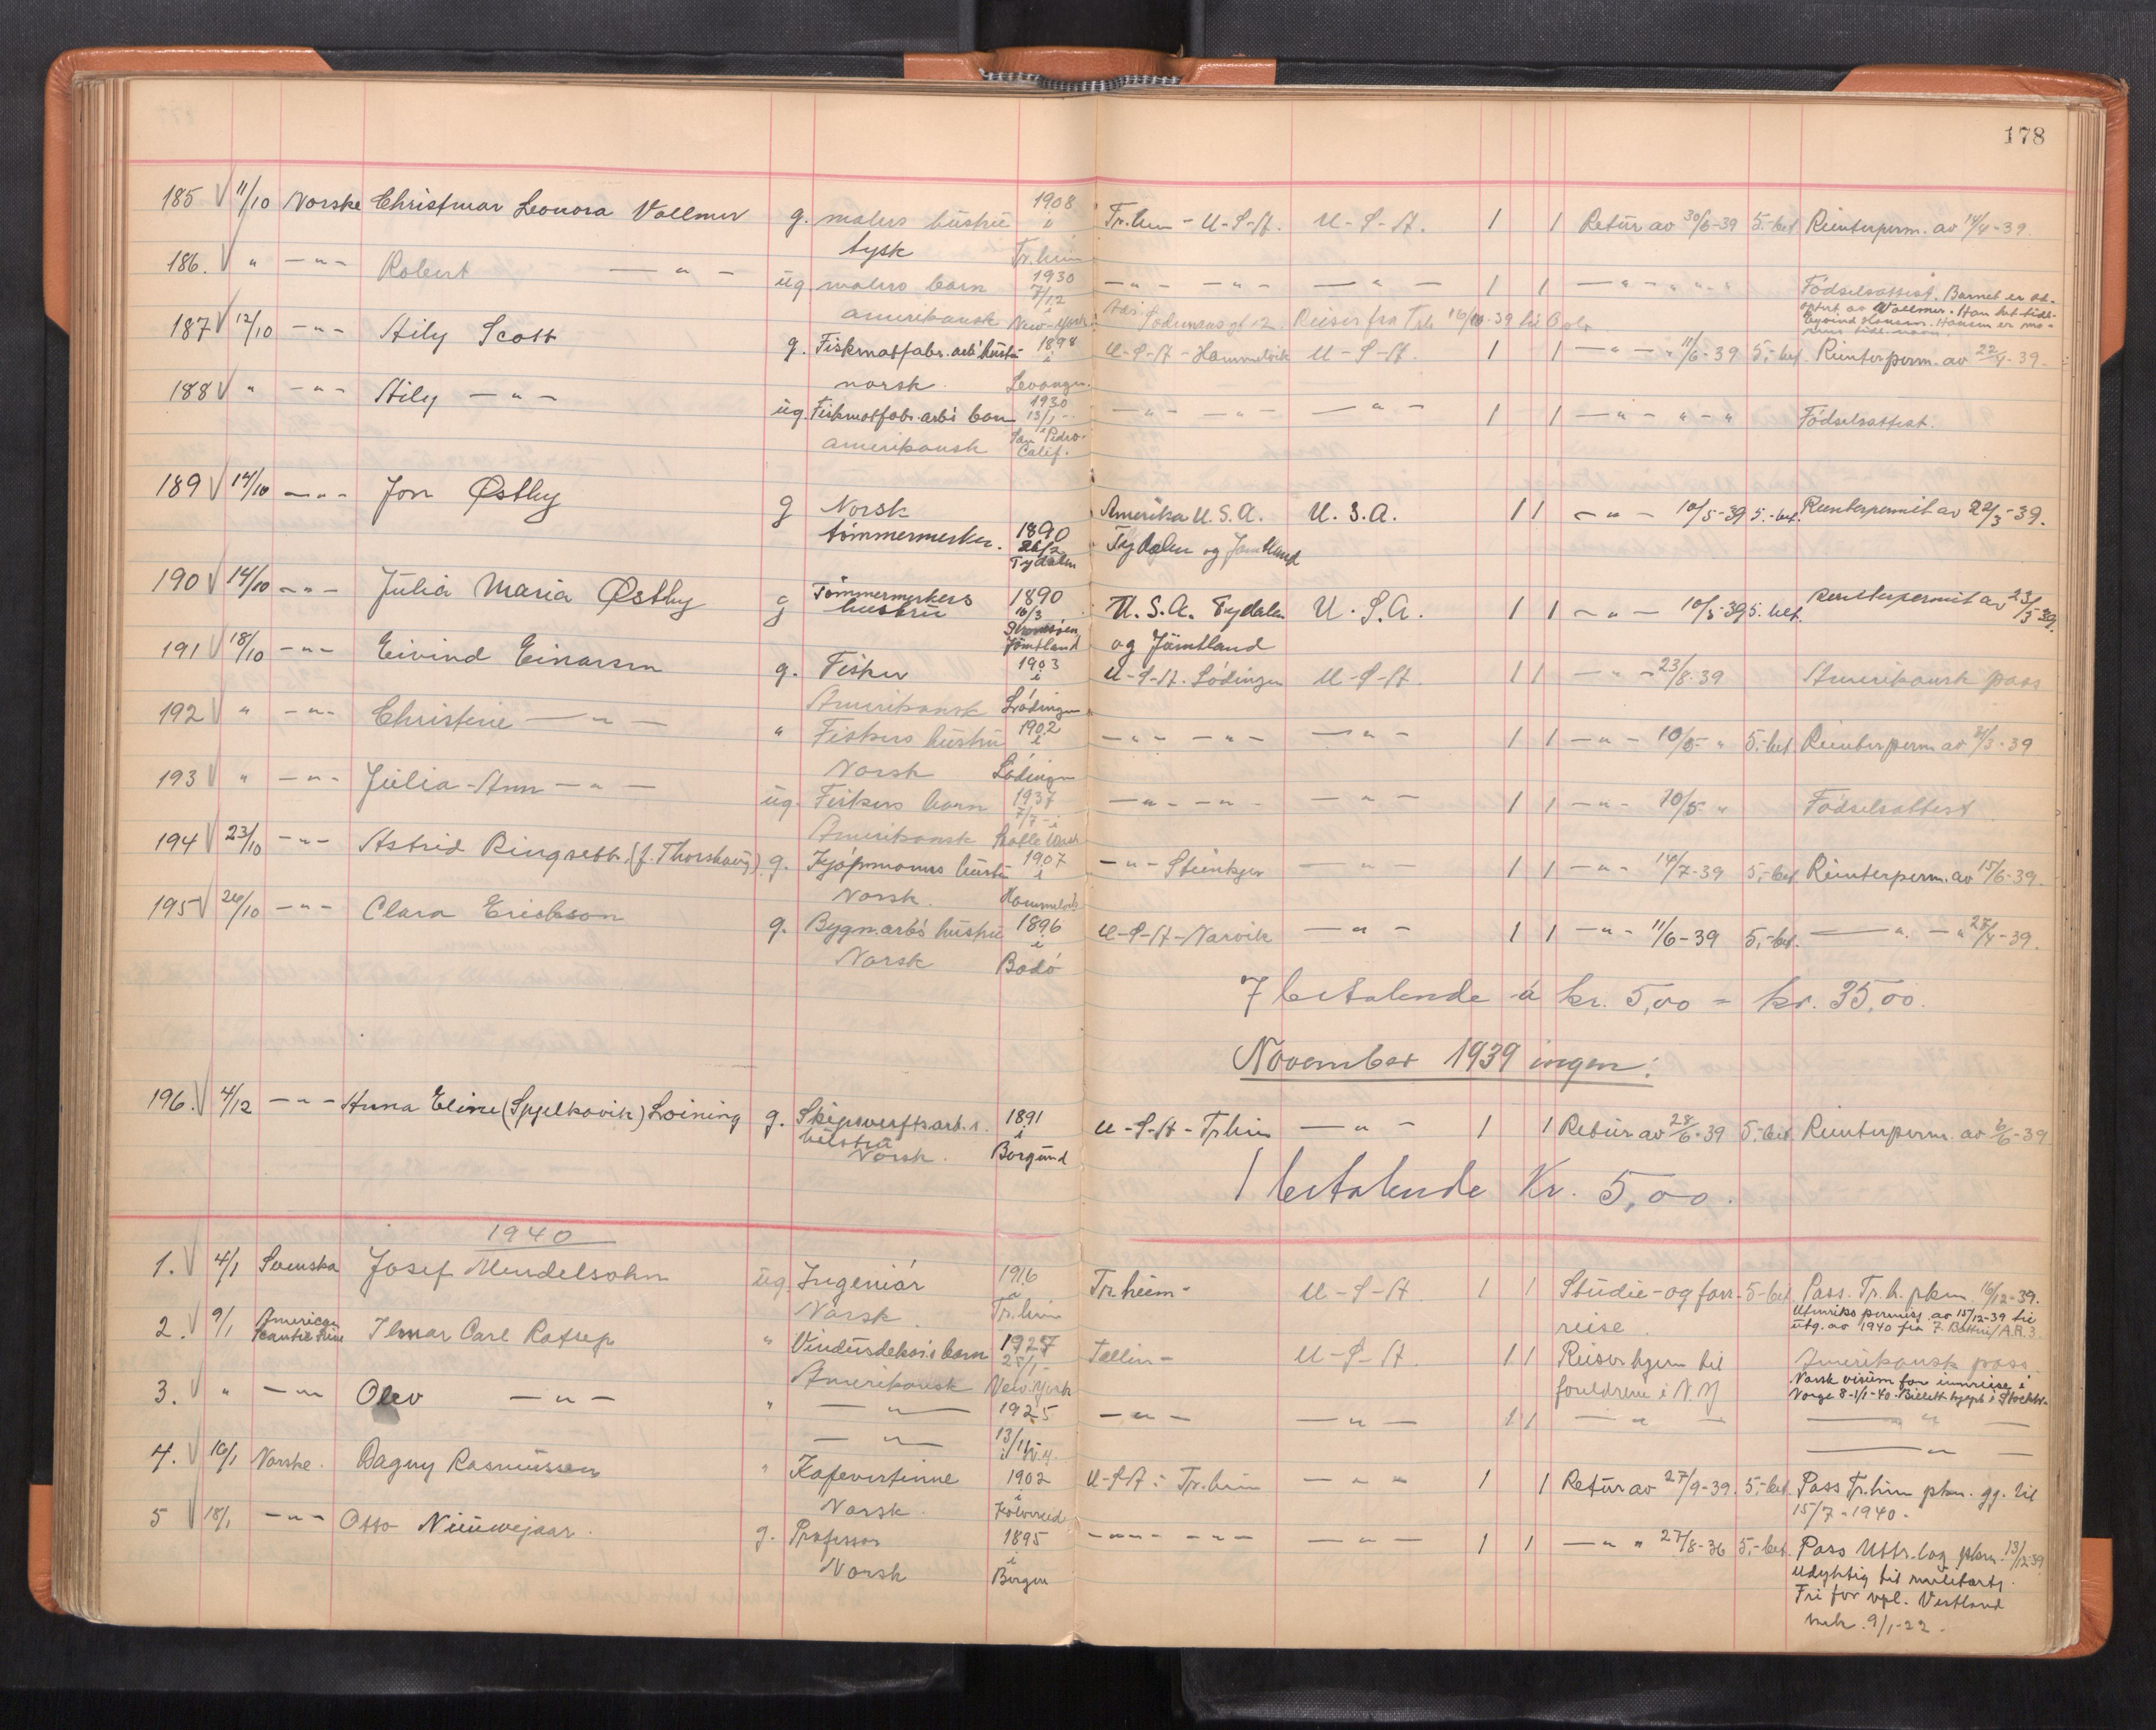 178
185 11/10 Norske Christmar Leonora Vollmer g. malers hustru 1908 Tr.heim - U-S-A. U-S-A. 1 1 Retur av 30/6-39 5.-bet Reenterperm. av 14/4-39.
tysk i Tr.heim
186. " -"- Robert -"- ug. malers barn 1930 -"- -"- -"- 1 1 -"- " -"- Födselsattest. Barnet er
7/12 av Vollmer. Han het tidl.
amerikansk New-York 2. Reiser fra Trh 16/10-39 til Oslo Eyvind Hansen. Hansen er
187 12/10 -"- Hily Scott g. Fiskmatfabr. arb. hustru 1898 U-S-A - Hammelvik U-S-A. 1 1 -"- 11/6-39 5,-bet. Reenterperm. av 22/4-39.
norsk. i Levanger.
188 " -"- Hily -"- ug. Fiskmatfabr. arb's barn 1930 -"- -"- -"- 1 1 -"- " -"- Födselsattest.
13/1
amerikansk San Pedro. Calif.
189 14/10 -"- Jon Østby g Norsk Amerika U.S.A. U.S.A. 1 1 -"- 10/5-39 5.-bet. Reenterpermit av 22/3-39.
tömmermerker. 1890 Tydalen og Jamtland
26/2 Tydalen
190 14/10 -"- Julia Maria Østby g Tömmermerkers 1890 U.S.A. Tydalen U.S.A. 1 1 -"- 10/5-39 5.bet. Reenterpermit av 23/3-39.
hustru 16/3 og Jämtland
Jämtland
191 18/10 -"- Eivind Einarsen g. Fisker 1903 U-S-A. Lödingen U-S-A. 1 1 -"- 23/8-39 Amerikansk pass
Amerikansk i Lödingen
192 " -"- Christine -"- " Fiskers hustru 1902 -"- -"- -"- 1 1 -"- 10/5- " 5.-bet Reenterperm av 2/3-39
Norsk i Lödingen
193 " -"- Julia-Ann -"- ug. Fiskers barn 1937 -"- -"- -"- 1 1 -"- 10/5- " Födselsattest
7/7 - i
Amerikansk
194 23/10 -"- Astrid Ringseth (f. Thorshaug) g. Kjöpmanns hustru 1907 -"- Steinkjer -"- 1 1 -"- 14/7-39 5,-bet Reenterperm. av 15/6-39.
Norsk. i Hommelvik
195 26/10 -"- Clara Erickson g. Bygn.arb's hustru 1896 U-S-A-Narvik -"- 1 1 -"- 11/6-39 5,-bet. -"- -"- 27/4-39.
Norsk i Bodö
7 betalende á kr. 5,00 = kr. 35,00.
November 1939 ingen.
196. 4/12 -"- Anna Eline (Spjelkavik) Loining g. Skipsverftsarb.s. 1891 U-S-A - Tr.heim -"- 1 1 Retur av 28/6-39 5.-bet Reenterperm. av 6/6-39
hustru i
Norsk. Borgund
1 betalende Kr. 5,00.
1940
1. 4/1 Svenska Josef Mendelsohn ug. Ingeniör 1916 Tr.heim - U-S-A 1 1 Studie- og forr- 5-bet Pass. Tr.h. pkm. 16/12-39.
Norsk. Tr.heim reise. Utenriks permisj. av 15/12-39 til
utg. av 1940 fra 7. Battri/A.R.3.
2. 9/1 American Scantic Line Ilmar Carl Ratsep " Vindusdekor.s barn 1927 Tallin - U-S-A. 1 1 Reiser hjem til Amerikansk pass.
25/1- foreldrene i N.Y Norsk visum for innreise i
Amerikansk New York Norge 8-1/1-40. Billett kjøpt i Stockh.
3. " -"- Olev -"- " -"- 1925 -"- -"- 1 1 -"- -"-
-"- 13/11 i N.Y. -"-
4. 16/1 Norske. Dagny Rasmussen " Kafevertinne 1902 U-S-A: Tr.heim -"- 1 1 Retur av 27/9-39. 5.-bet Pass Tr.heim pkm. gj. til
Norsk. i Kolvereid 15/7-1940-
5 18/1 -"- Otto Nieuwejaar. g. Professor 1895 -"- -"- -"- 1 1 -"- " 27/8-36 5,-bet. Pass Uttr.lag pkm. 13/12-39
Norsk i Bergen Udyktig til militærtj.
Fri for vpl. Vestland
9/1-22-